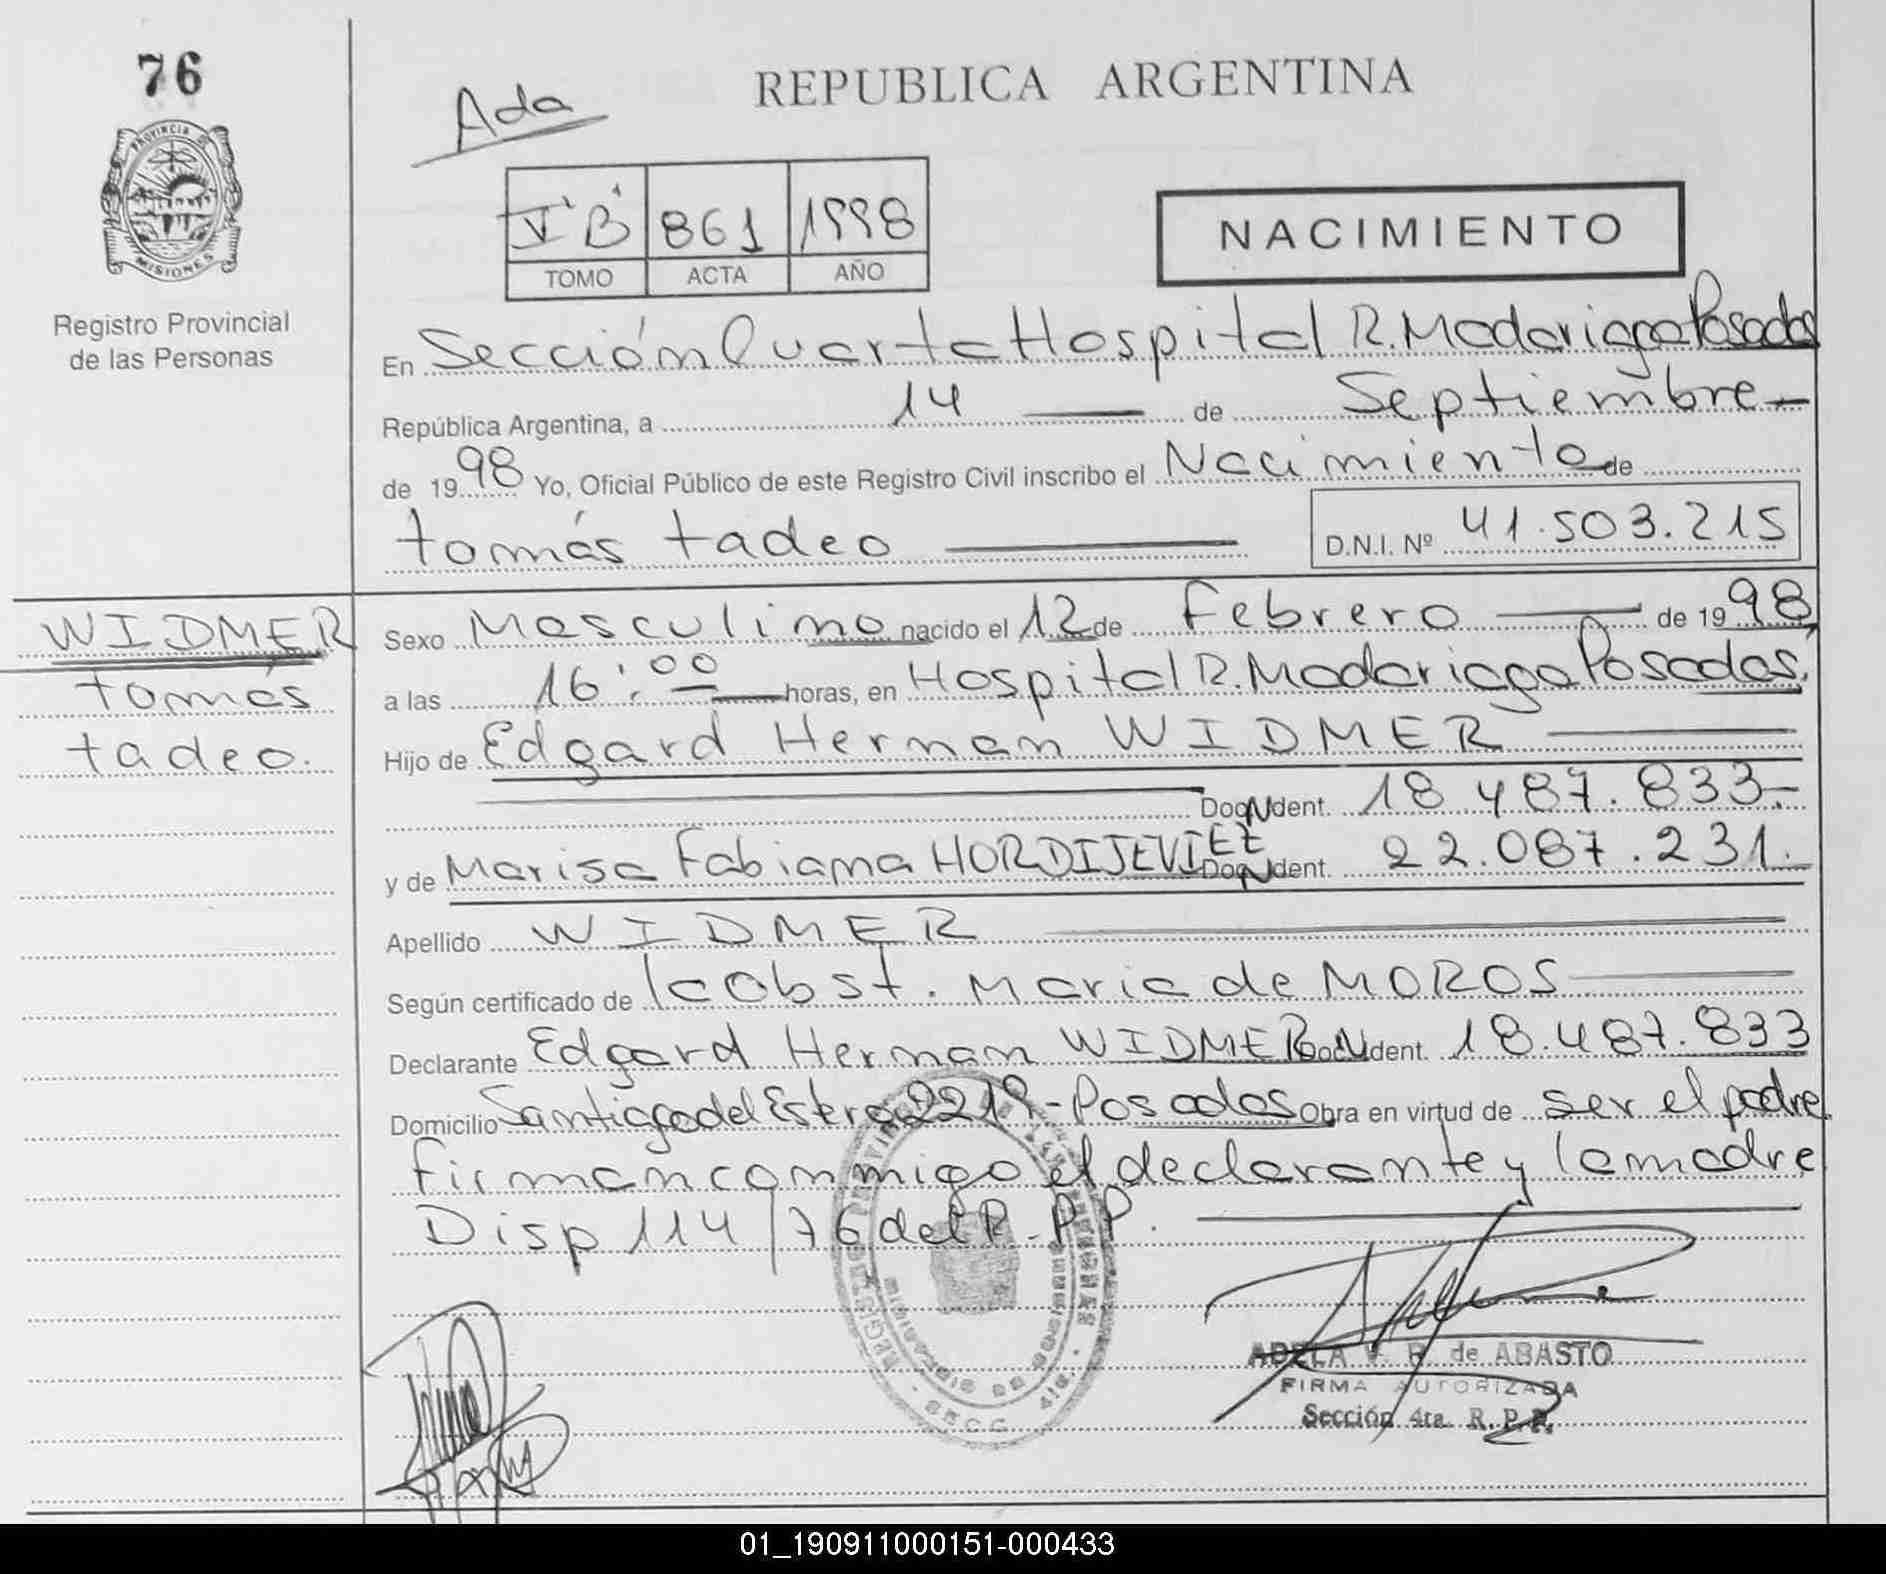 76
Ada
REPUBLICA ARGENTINA
PROVINCIA DE
MISIONES
V "B" 861 1998
TOMO ACTA AÑO
NACIMIENTO
Registro Provincial
de las Personas
En Sección Cuarta Hospital R. Madariaga Posadas
República Argentina, a 14 de Septiembre
de 1998 Yo, Oficial Público de este Registro Civil inscribo el Nacimiento de
tomás tadeo D.N.I. Nº 41.503.215
WIDMER
tomás
tadeo.
Sexo Masculino nacido el 12 de Febrero de 1998
a las 16:00 horas, en Hospital R. Madariaga Posadas.
Hijo de Edgard Hernan WIDMER
Doc. Ident. 18.487.833.-
y de Marisa Fabiana HORDIJEVIEZ Doc. Ident. 22.087.231.
Apellido WIDMER
Según certificado de la obst. Maria de MOROS
Declarante Edgard Hernan WIDMER Doc. Ident. 18.487.833
Domicilio Santiago del Estero 2219 - Posadas Obra en virtud de ser el padre
firman conmigo el declarante y la madre
Disp 114/76 del R.P.P.
ADELA V. R. de ABASTO
FIRMA AUTORIZADA
Sección 4ta. R. P. P.
01_190911000151-000433